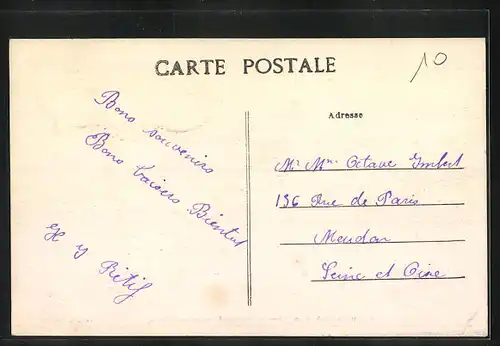 CARTE POSTALE
10
Adresse
Bons souvenirs
Bons baisers Bientot
Mr Mme Octave Imbert
136 Rue de Paris
Meudon
Seine et Oise
et y Rétif